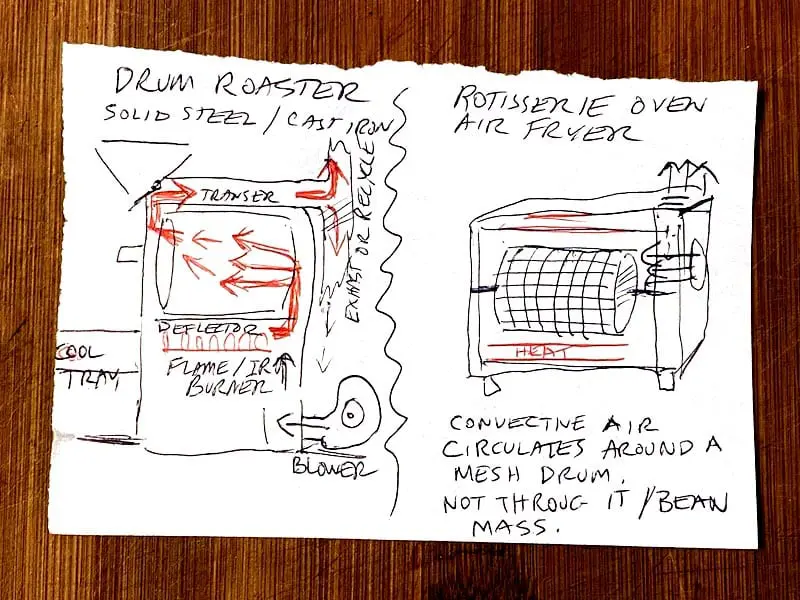 DRUM ROASTER
SOLID STEEL / CAST IRON
TRANSER
EXHAST OR RECYCLE
DEFLECTOR
FLAME/IR
BURNER
COOL
TRAY
BLOWER
ROTISSERIE OVEN
AIR FRYER
HEAT
CONVECTIVE AIR
CIRCULATES AROUND A
MESH DRUM.
NOT THROUG IT / BEAN
MASS.